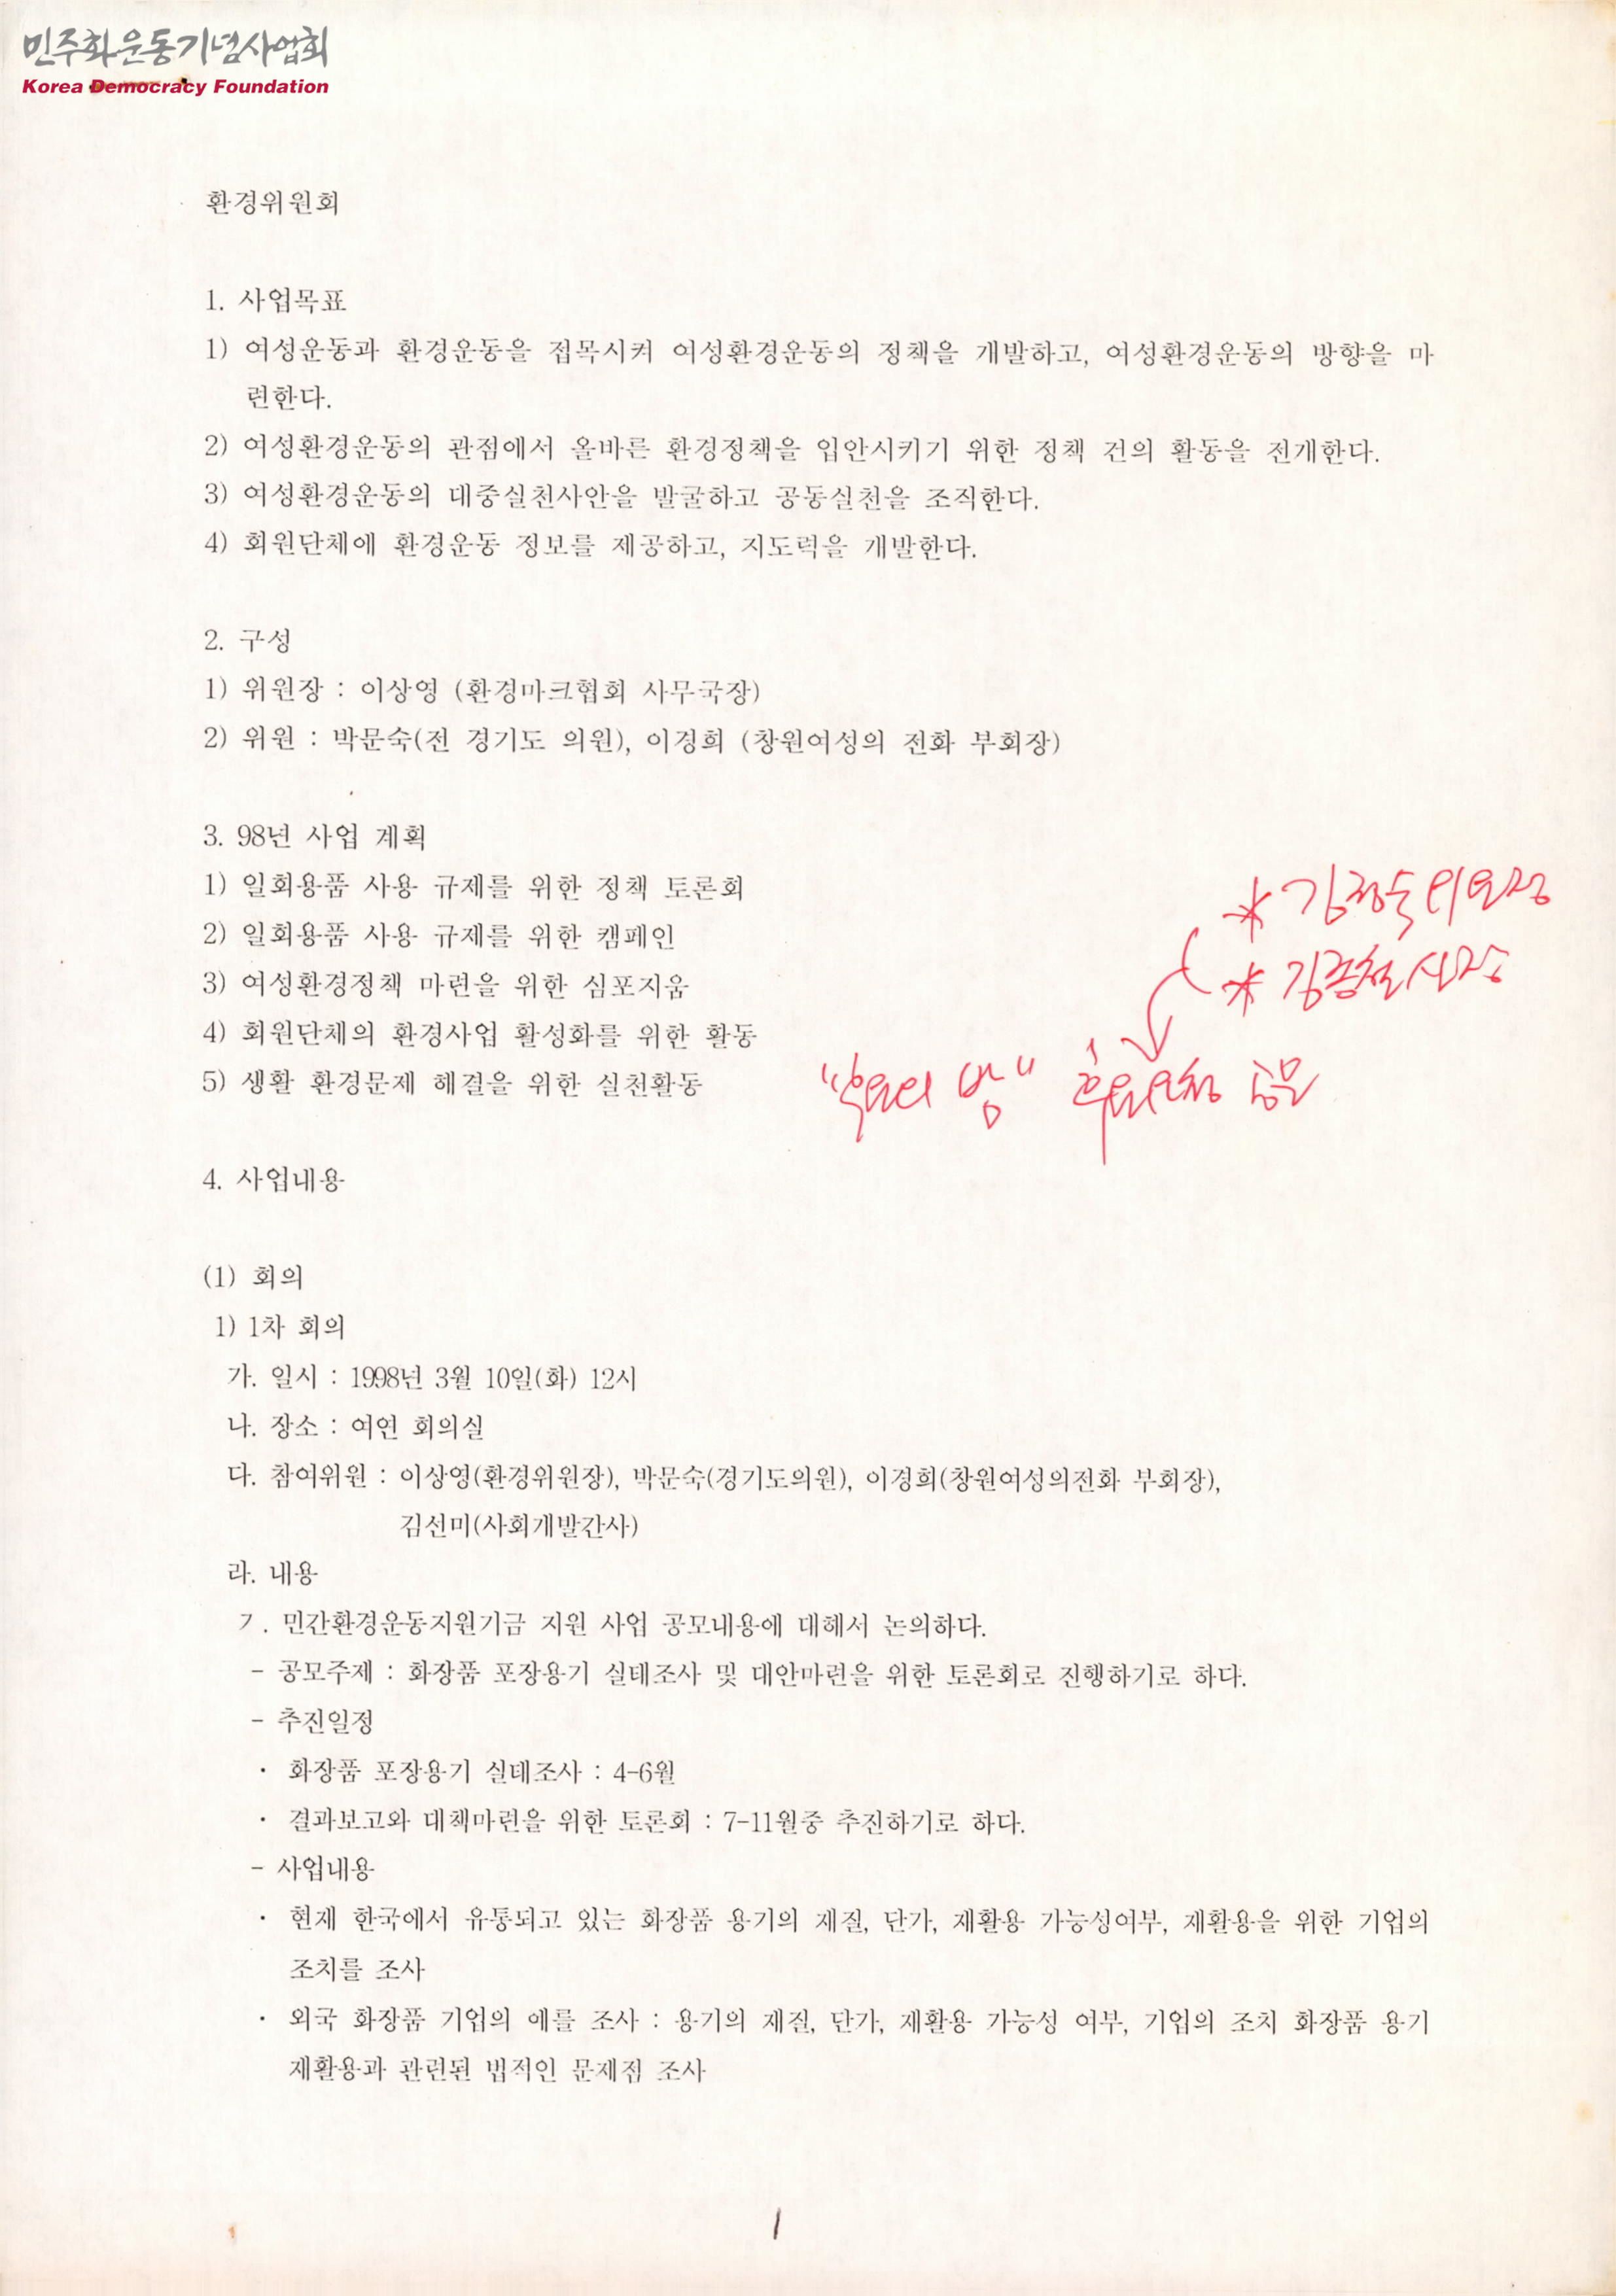 민주화운동기념사업회
Korea Democracy Foundation
환경위원회
1. 사업목표
1) 여성운동과 환경운동을 접목시켜 여성환경운동의 정책을 개발하고, 여성환경운동의 방향을 마
련한다.
2) 여성환경운동의 관점에서 올바른 환경정책을 입안시키기 위한 정책 건의 활동을 전개한다.
3) 여성환경운동의 대중실천사안을 발굴하고 공동실천을 조직한다.
4) 회원단체에 환경운동 정보를 제공하고, 지도력을 개발한다.
2. 구성
1) 위원장 : 이상영 (환경마크협회 사무국장)
2) 위원 : 박문숙(전 경기도 의원), 이경희 (창원여성의 전화 부회장)
3. 98년 사업 계획
1) 일회용품 사용 규제를 위한 정책 토론회
* 김정숙 위원장
2) 일회용품 사용 규제를 위한 캠페인
3) 여성환경정책 마련을 위한 심포지움
* 김종철
4) 회원단체의 환경사업 활성화를 위한 활동
5) 생활 환경문제 해결을 위한 실천활동
밤" 후원요청 공문
4. 사업내용
(1) 회의
1) 1차 회의
가. 일시 : 1998년 3월 10일(화) 12시
나. 장소 : 여연 회의실
다. 참여위원 : 이상영(환경위원장), 박문숙(경기도의원), 이경희(창원여성의전화 부회장),
김선미(사회개발간사)
라. 내용
ㄱ. 민간환경운동지원기금 지원 사업 공모내용에 대해서 논의하다.
- 공모주제 : 화장품 포장용기 실태조사 및 대안마련을 위한 토론회로 진행하기로 하다.
- 추진일정
· 화장품 포장용기 실태조사 : 4-6월
· 결과보고와 대책마련을 위한 토론회 : 7-11월중 추진하기로 하다.
- 사업내용
· 현재 한국에서 유통되고 있는 화장품 용기의 재질, 단가, 재활용 가능성여부, 재활용을 위한 기업의
조치를 조사
· 외국 화장품 기업의 예를 조사 : 용기의 재질, 단가, 재활용 가능성 여부, 기업의 조치 화장품 용기
재활용과 관련된 법적인 문제점 조사
1